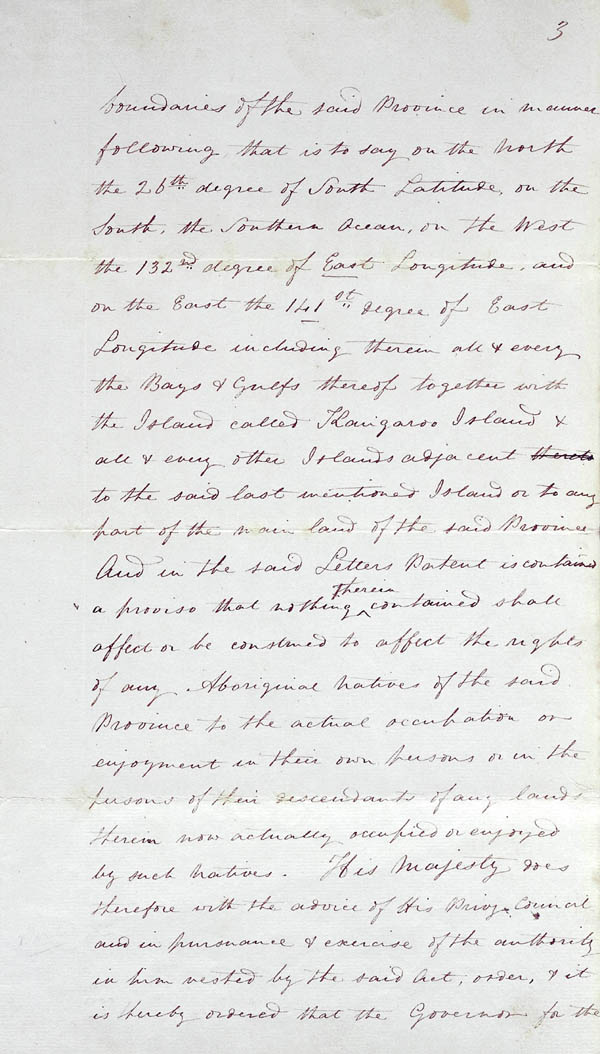 3
boundaries of the said Province in manner
following, that is to say on the North
the 26th degree of South Latitude, on the
South, the Southern Ocean, on the West
the 132nd degree of East Longitude, and
on the East the 141st degree of East
Longitude including therein all & every
the Bays & Gulfs thereof together with
the Island called Kangaroo Island &
all & every other Islands adjacent thereto
to the said last mentioned Island or to any
part of the main land of the said Province
And in the said Letters Patent is contained
a proviso that nothing therein contained shall
affect or be construed to affect the rights
of any Aboriginal Natives of the said
Province to the actual occupation or
enjoyment in their own persons or in the
persons of their descendants of any lands
therein now actually occupied or enjoyed
by such Natives. His Majesty does
therefore with the advice of His Privy Council
and in pursuance & exercise of the authority
in him vested by the said Act, order, & it
is hereby ordered that the Governor for the